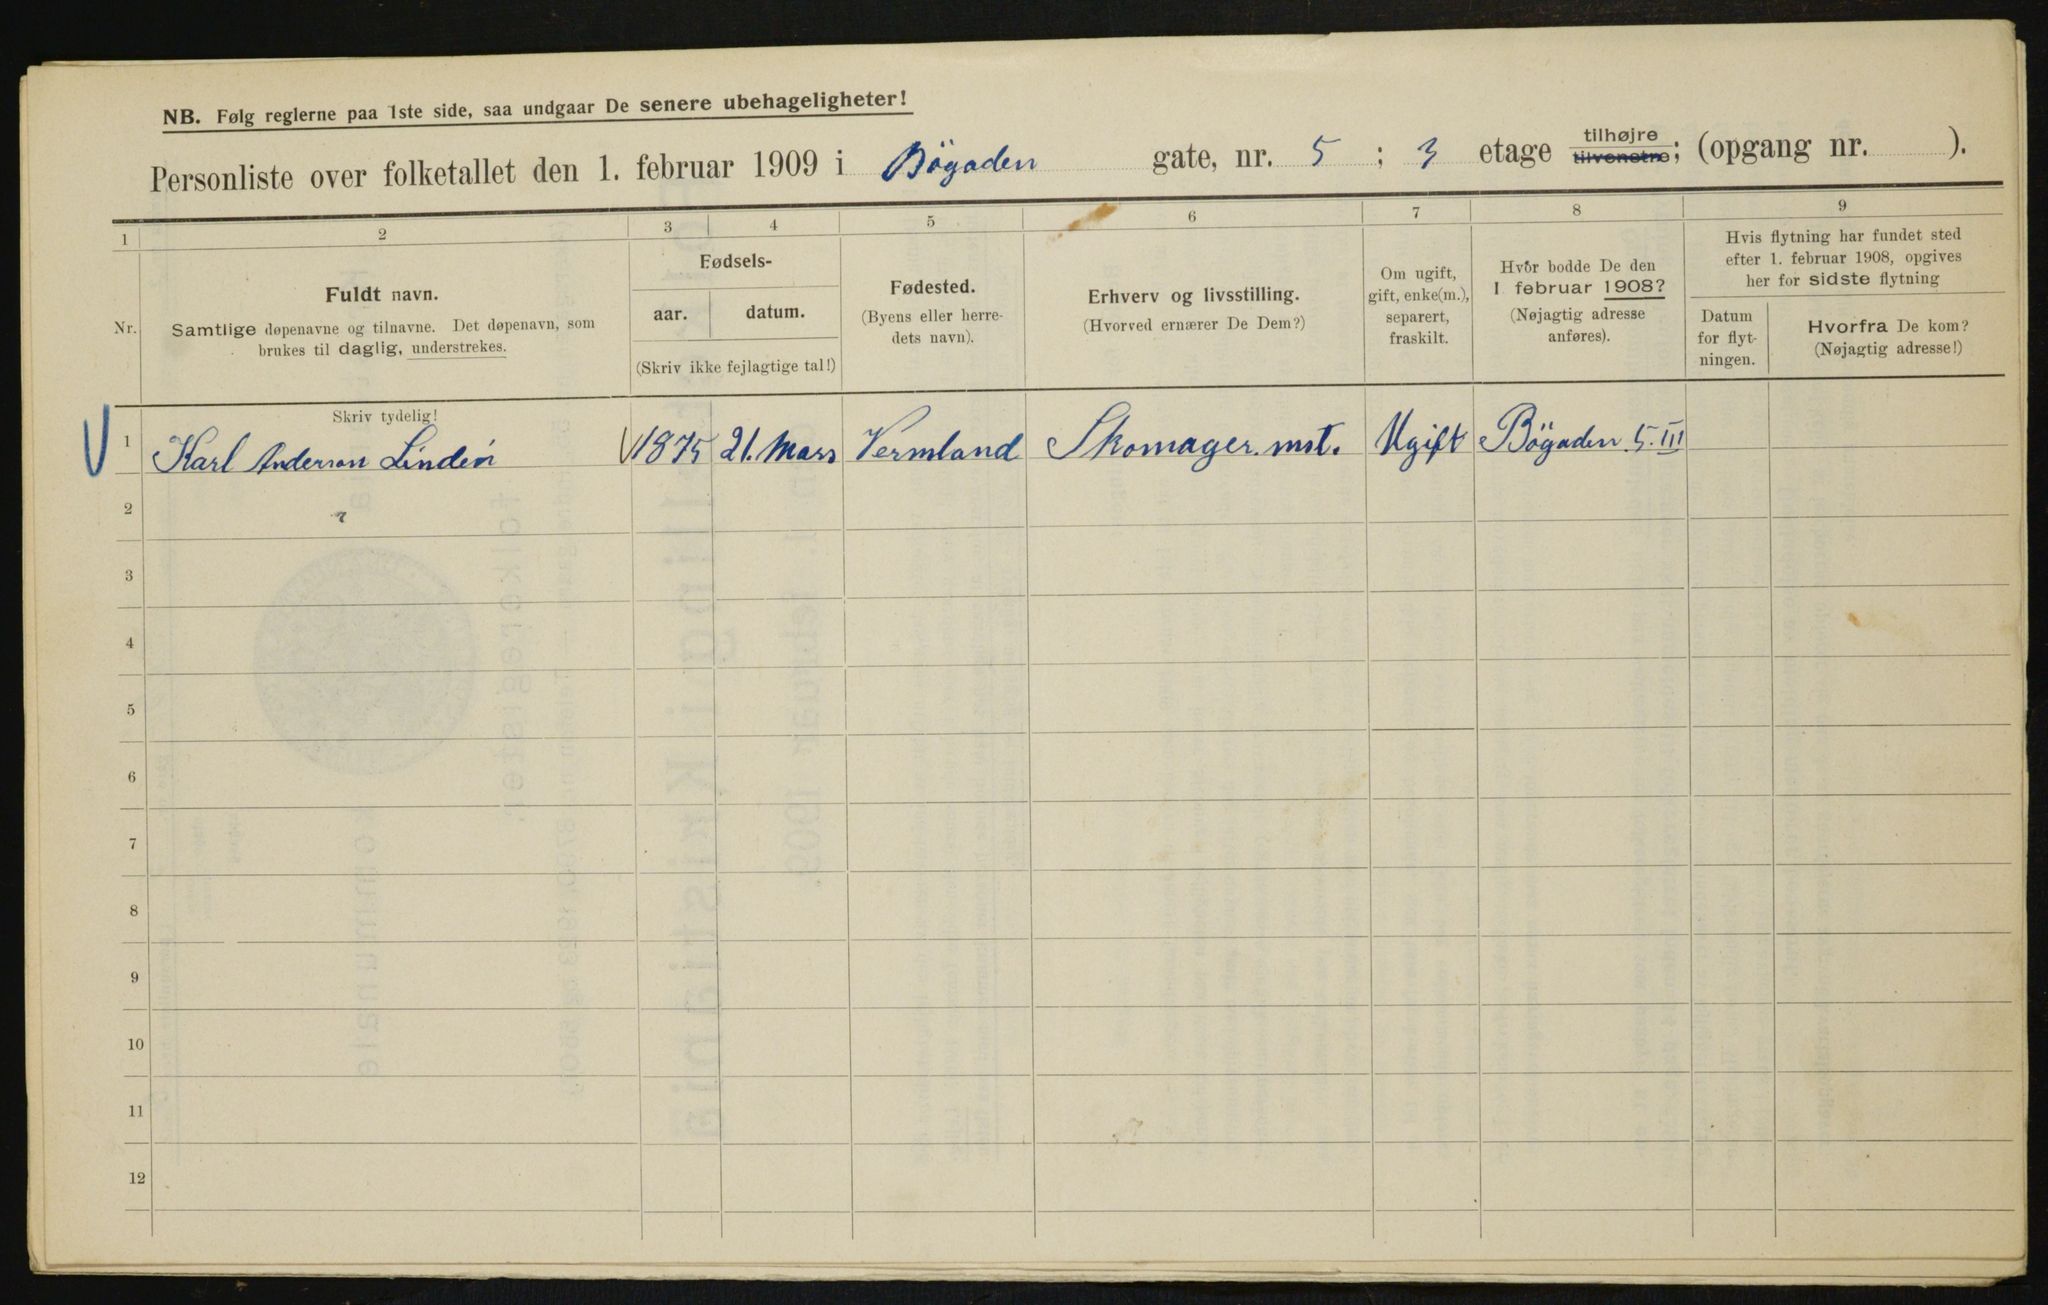 NB. Følg reglerne paa 1ste side, saa undgaar De senere ubehageligheter!
Personliste over folketallet den 1. februar 1909 i Bögaden gate, nr. 5 ; 3 etage tilhøjre tilvenstre; (opgang nr. ).
1 2 3 4 5 6 7 8 9
Nr.
Fuldt navn.
Samtlige døpenavne og tilnavne. Det døpenavn, som
brukes til daglig, understrekes.
Fødsels-
aar. datum.
(Skriv ikke fejlagtige tal!)
Fødested.
(Byens eller herre-
dets navn).
Erhverv og livsstilling.
(Hvorved ernærer De Dem?)
Om ugift,
gift, enke(m.),
separert,
fraskilt.
Hvor bodde De den
1 februar 1908?
(Nøjagtig adresse
anføres).
Hvis flytning har fundet sted
efter 1. februar 1908, opgives
her for sidste flytning
Datum
for flyt-
ningen.
Hvorfra De kom?
(Nøjagtig adresse!)
Skriv tydelig!
1 Karl Anderson Lindén 1875 21. Mars Vermland Skomager. mst. Ugift Bögaden 5. III
2
3
4
5
6
7
8
9
10
11
12